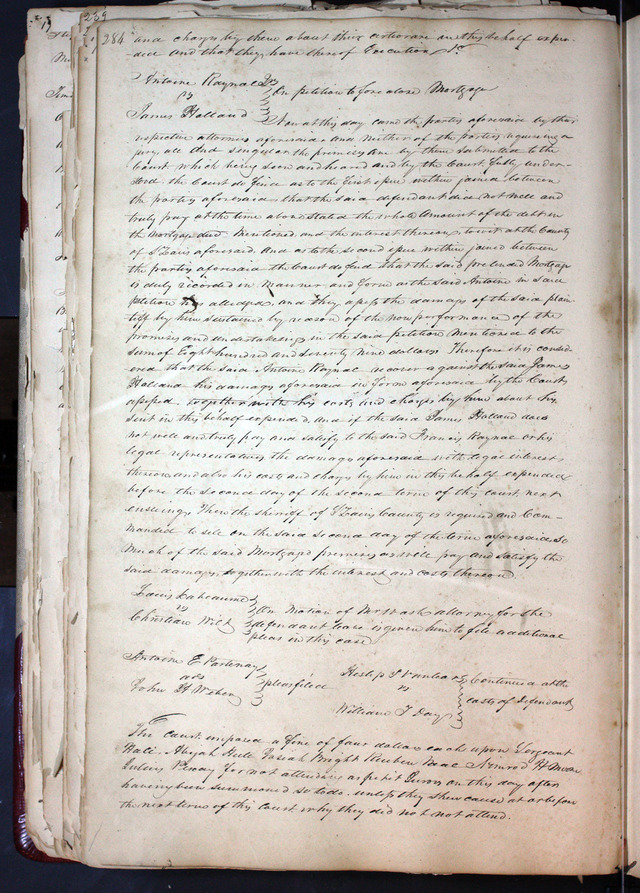 259
284
and charges by them about their action are in this behalf expen-
ded and that they have thereof Execution &c
Antoine Raynal
vs
James Holland
On petition to foreclose Mortgage
Now at this day came the parties aforesaid by their
respective attornies aforesaid and neither of the parties requiring a
jury all and singular the premises are by them submitted to the
Court which being seen and heard and by the Court fully under-
stood the Court do find as to the first issue within joined between
the parties aforesaid that the said defendant did not well and
truly pay at the time above stated the whole Amount of the debt in
the Mortgage deed Mentioned and the interest thereon, to wit at the County
of St Louis aforesaid. And as to the second issue within joined between
the parties aforesaid the Court do find that the said pretended Mortgage
is duly recorded in Manner and form as the said Antoine in said
petition alledges, and they assess the damage of the said plain
tiff by him sustained by reason of the non performance of the
promises and undertakings in the said petition Mentioned to the
sum of Eight hundred and seventy nine dollars. Therefore it is consid-
ered that the said Antoine Raynal recover against the said James
Holland his damages aforesaid in form aforesaid by the Court
assessed, together with his costs and charges by him about his
suit in this behalf expended, and if the said James Holland does
not well and truly pay and satisfy to the said Francis Raynal or his
legal representatives the damages aforesaid with legal interest
thereon and also his costs and charges by him in this behalf expended
before the second day of the second term of this court next
ensueing, Then the sheriff of St Louis County is required and Com-
manded to sell on the said second day of the term aforesaid so
Much of the said Mortgaged premises as will pay and satisfy the
said damages, together with the interest and costs thereon.
Louis Labeaume
vs
Christian Wilt
On Motion of Mr Wash attorney for the
defendant leave is given him to file additional
pleas in this case
Antoine E Partenay
ads
John H Weber
pleas filed
vs
William T Day
Continued at the
costs of Defendant
The Court imposed a fine of four dollars each upon Sergeant
Hall. Abijah Hull Josiah Bright Reuben Isaac Nimrod H Moore
Julius Penoy for not attending as petit Jurors on this day after
having been summoned so to do, unless they shew cause at or before
the next term of this Court why they did not not attend.